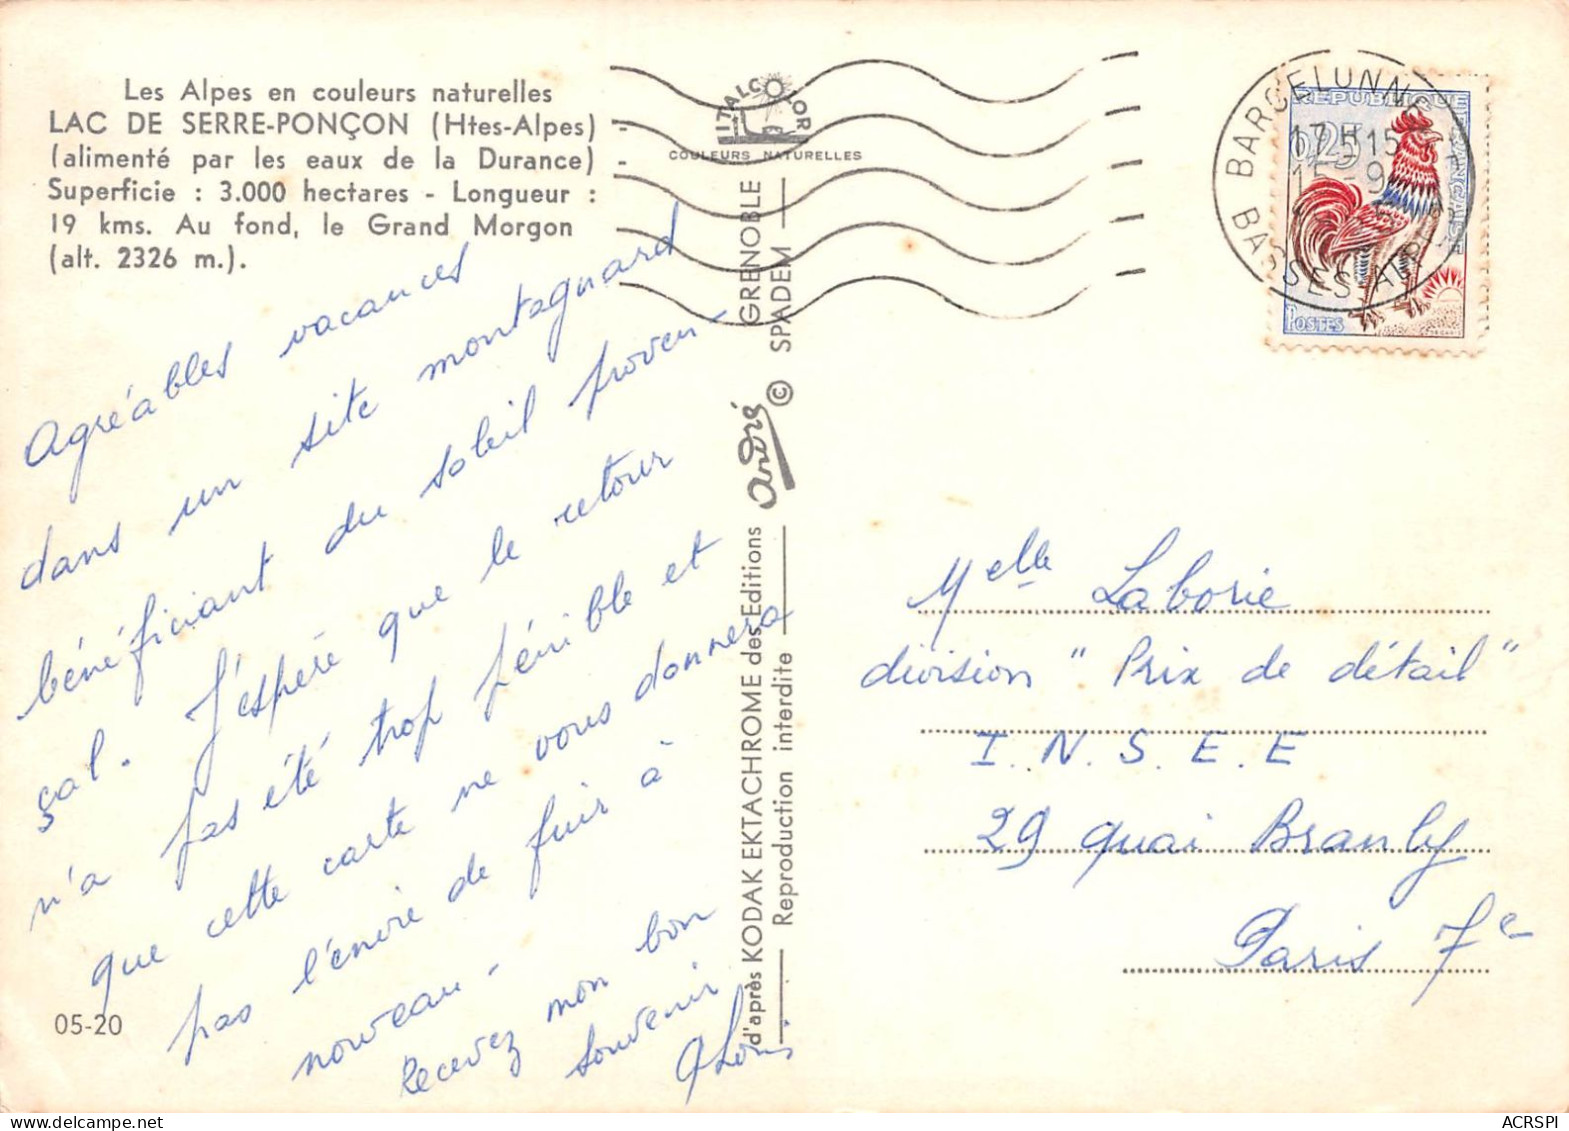 Les Alpes en couleurs naturelles
LAC DE SERRE-PONÇON (Htes-Alpes) -
(alimenté par les eaux de la Durance) -
Superficie : 3.000 hectares - Longueur :
19 kms. Au fond, le Grand Morgon
(alt. 2326 m.).
Agréables vacances
dans un site montagnard
bénéficiant du soleil proven-
çal. J'espère que le retour
n'a pas été trop pénible et
que cette carte ne vous donnera
pas l'envie de fuir à
nouveau.
Recevez mon bon
souvenir
05-20
ITALCOLOR
COULEURS NATURELLES
d'après KODAK EKTACHROME des Editions André GRENOBLE
Reproduction interdite © SPADEM
BARCELONNETTE
17 H 15
15 - 9
BASSES-ALPES
REPUBLIQUE FRANÇAISE
0,25
POSTES
Melle Laborie
division "Prix de détail"
I.N.S.E.E
29 quai Branly
Paris 7e
ACRSPI